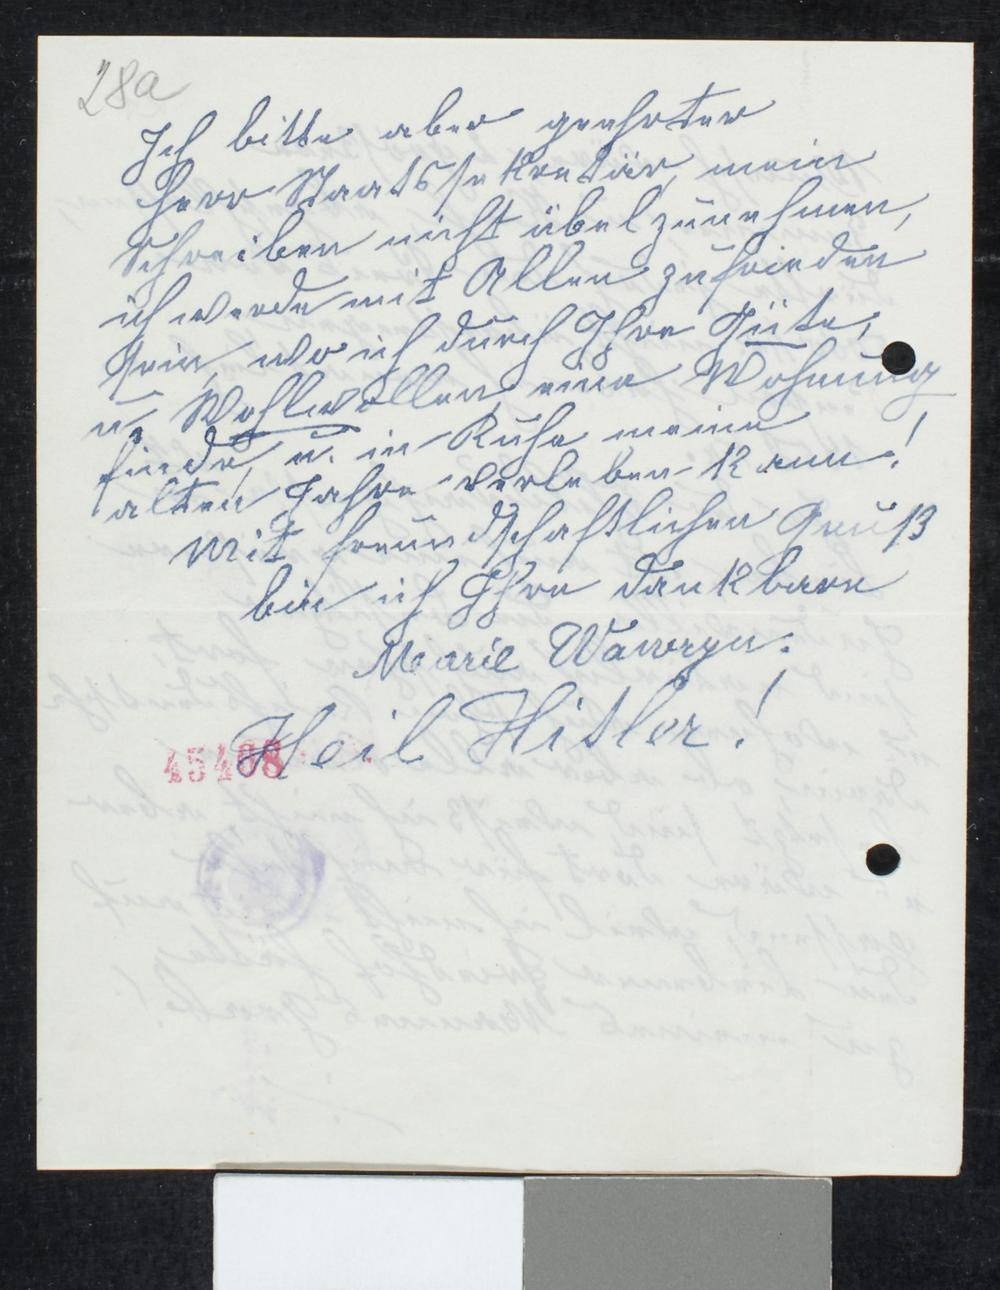 28a
Ich bitte aber geehrter
Herr Staatssekretär, mein
Schreiben nicht übelzunehmen,
ich werde mit Allen zufrieden
sein, wo ich durch Ihre Güte,
u. Wohlwollen eine Wohnung
finde, u. in Ruhe meine
alten Jahre verleben kann!
Mit freundschaftlichen Gruß
bin ich Ihre dankbare
Marie Wawrzyn.
Heil Hitler!
45408